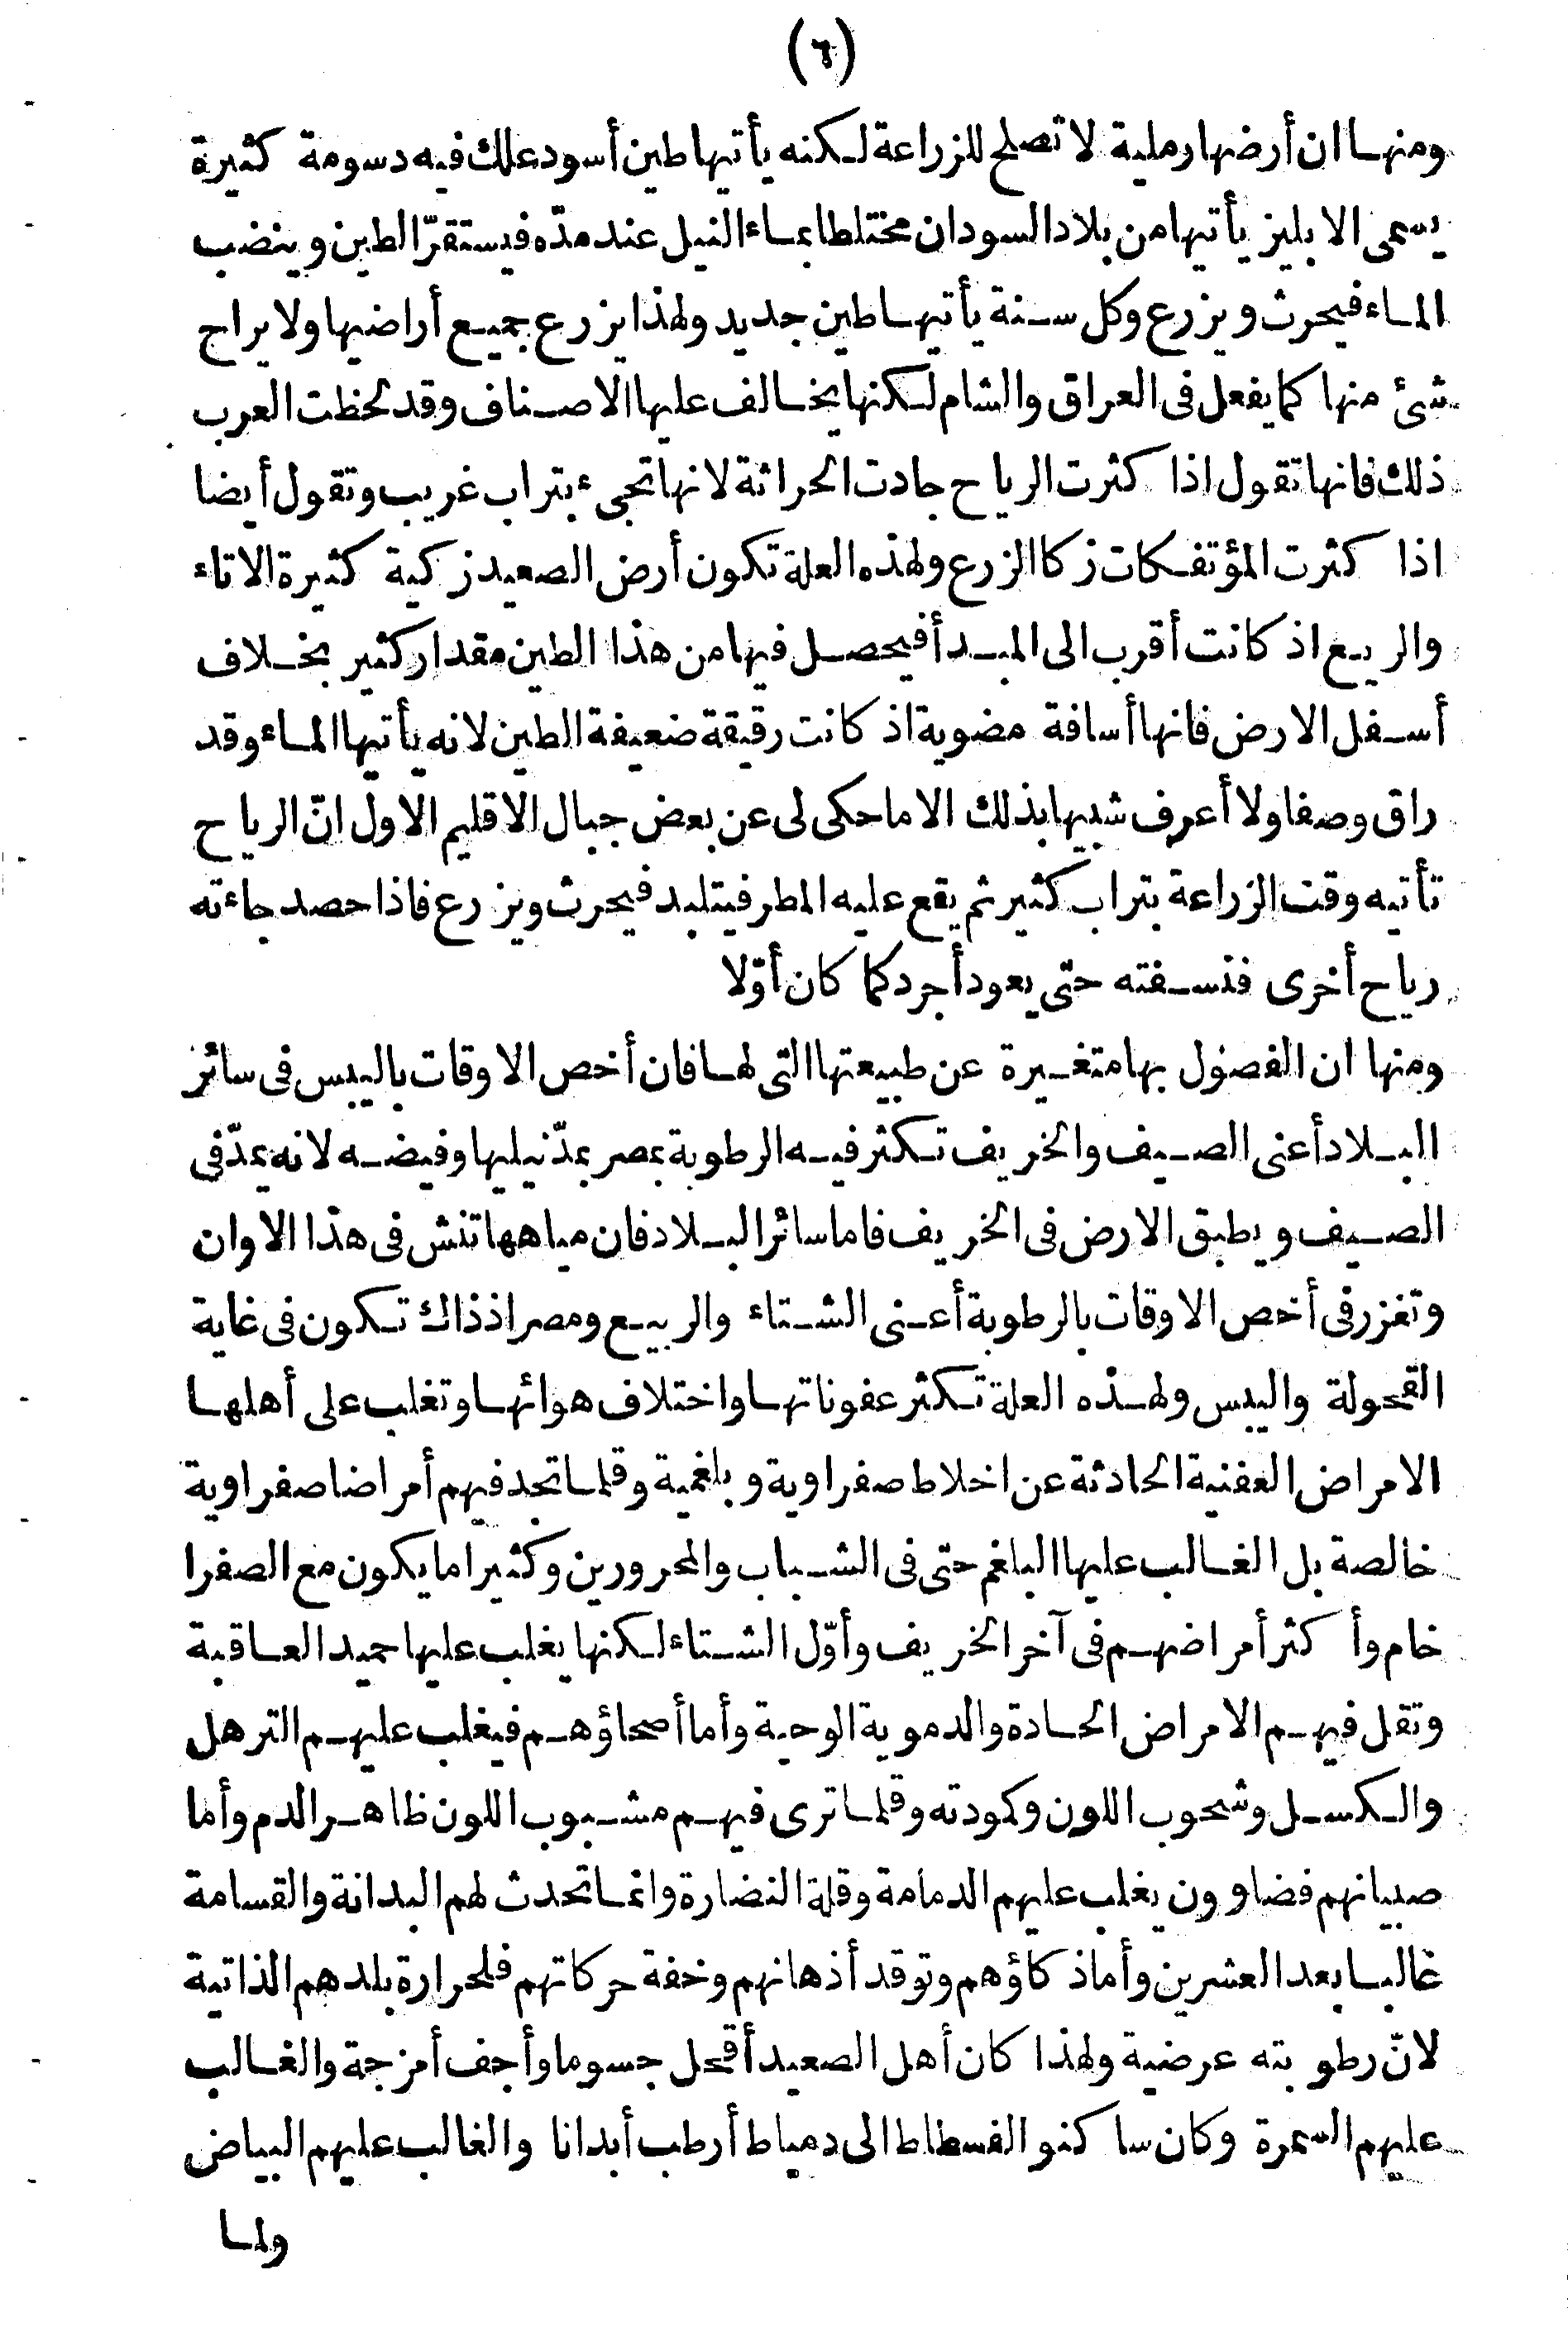 (٦)
ومنها ان أرضها رملية لا تصلح للزراعة لكنه يأتيها طين أسود علك فيه دسومة كثيرة
يسمى الابليز يأتيها من بلاد السودان مختلطا بماء النيل عند مدّه فيستقرّ الطين وينضب
الماء فيحرث ويزرع وكل سنة يأتيها طين جديد ولهذا يزرع جميع أراضيها ولا يراح
شئ منها كما يفعل فى العراق والشام لكنها يخالف عليها الاصناف وقد لحظت العرب
ذلك فانها تقول اذا كثرت الرياح جادت الحراثة لانها تجىء بتراب غريب وتقول أيضا
اذا كثرت المؤتفكات زكا الزرع ولهذه العلة تكون أرض الصعيد زكية كثيرة الاتاء
والريع اذ كانت أقرب الى المبدأ فيحصل فيها من هذا الطين مقدار كثير بخلاف
أسفل الارض فانها أسافة مضوية اذ كانت رقيقة ضعيفة الطين لانه يأتيها الماء وقد
راق وصفا ولا أعرف شبيها بذلك الا ما حكى لى عن بعض جبال الاقليم الاول انّ الرياح
تأتيه وقت الزراعة بتراب كثير ثم يقع عليه المطر فيتلبد فيحرث ويزرع فاذا حصد جاءته
رياح أخرى فنسفته حتى يعود أجرد كما كان أوّلا
ومنها ان الفصول بها متغيرة عن طبيعتها التى لها فان أخص الاوقات باليبس فى سائر
البلاد أعنى الصيف والخريف تكثر فيه الرطوبة بمصر بمدّ نيلها وفيضه لانه يمدّ فى
الصيف ويطبق الارض فى الخريف فاما سائر البلاد فان مياهها تنش فى هذا الاوان
وتغزر فى أخص الاوقات بالرطوبة أعنى الشتاء والربيع ومصر اذ ذاك تكون فى غاية
القحولة واليبس ولهذه العلة تكثر عفوناتها واختلاف هوائها وتغلب على أهلها
الامراض العفنية الحادثة عن اخلاط صفراوية وبلغمية وقلما تجد فيهم أمراضا صفراوية
خالصة بل الغالب عليها البلغم حتى فى الشباب والمحرورين وكثيرا ما يكون مع الصفرا
خام وأكثر أمراضهم فى آخر الخريف وأوّل الشتاء لكنها يغلب عليها حميد العاقبة
وتقل فيهم الامراض الحادة والدموية الوحية وأما أصحاؤهم فيغلب عليهم الترهل
والكسل وشحوب اللون وكمودته وقلما ترى فيهم مشبوب اللون ظاهر الدم وأما
صبيانهم فضاوون يغلب عليهم الدمامة وقلة النضارة وانما تحدث لهم البدانة والقسامة
غالبا بعد العشرين وأما ذكاؤهم وتوقد أذهانهم وخفة حركاتهم فلحرارة بلدهم الذاتية
لانّ رطوبته عرضية ولهذا كان أهل الصعيد أقحل جسوما وأجف أمزجة والغالب
عليهم السمرة وكان ساكنو الفسطاط الى دمياط أرطب أبدانا والغالب عليهم البياض
ولما